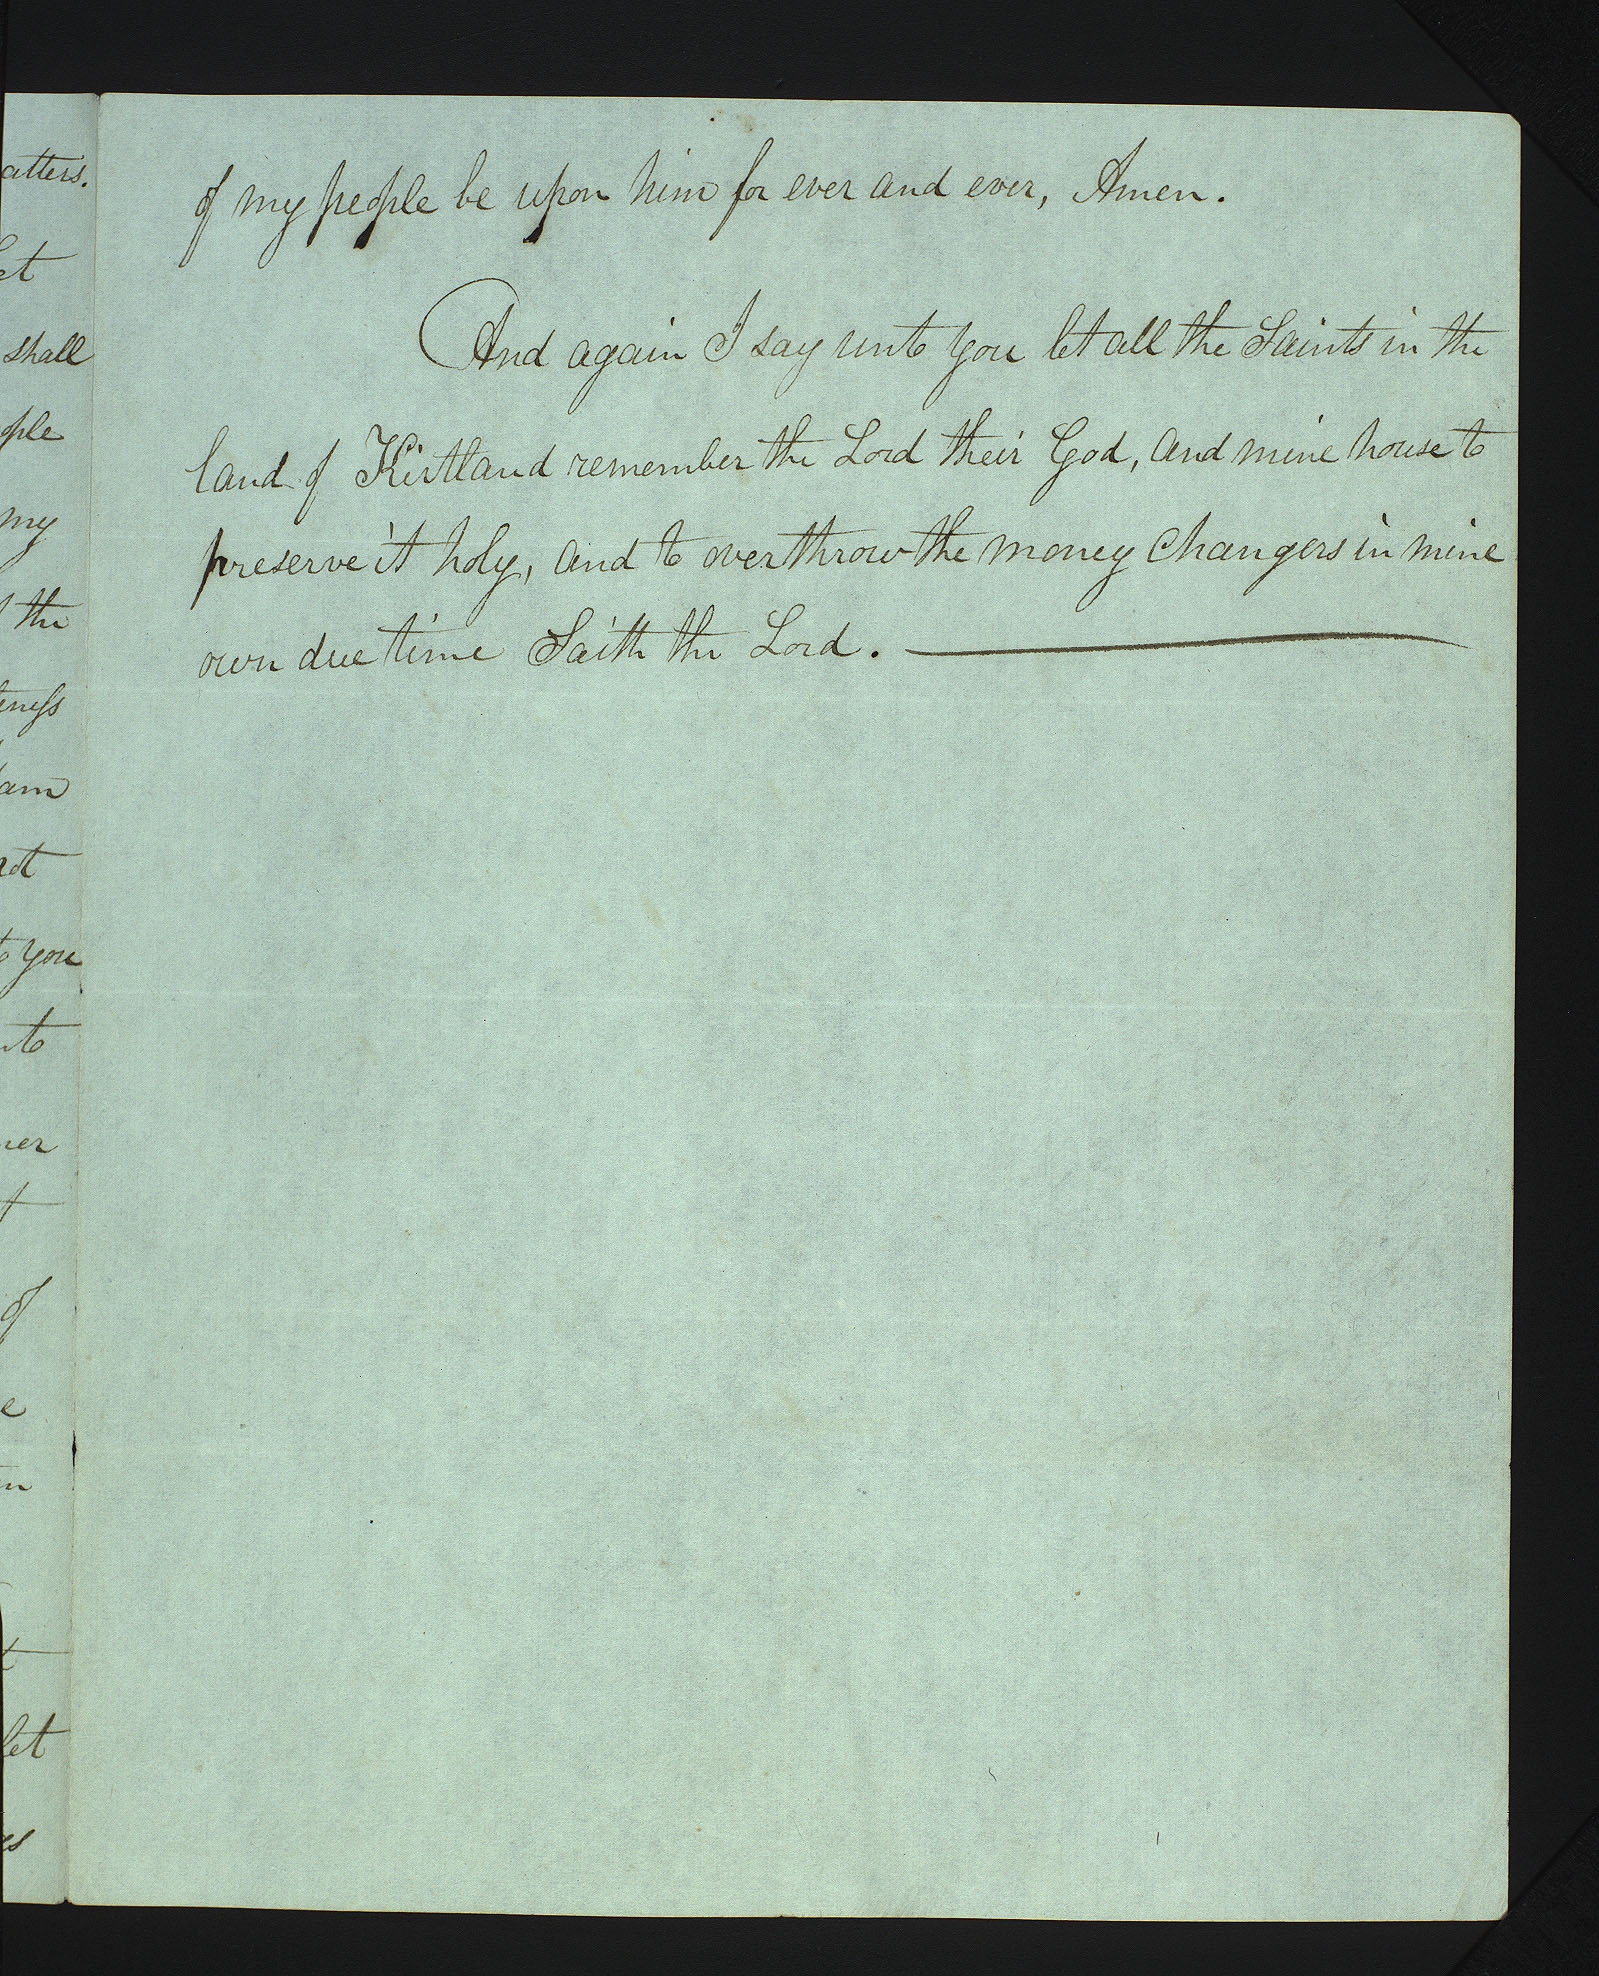 atters.
et
shall
ople
my
the
eness
am
not
to you
nto
ner
t
of
e
in
t
let
es
of my people be upon him for ever and ever, Amen.
And again I say unto you let all the Saints in the
land of Kirtland remember the Lord their God, and mine house to
preserve it holy, and to overthrow the money changers in mine
own due time Saith the Lord.